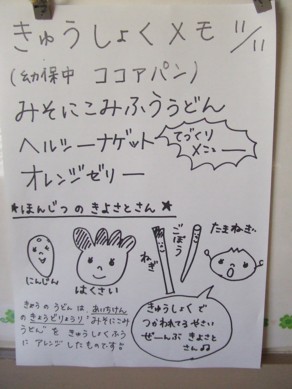 きゅうしょくメモ 11/11
(幼保中 ココアパン)
みそにこみふううどん
ヘルシーナゲット
てづくり
メニュー
オレンジゼリー
★ほんじつの きよさとさん★
にんじん
はくさい
ねぎ
ごぼう
たまねぎ
きょうの うどんは、あいちけん
の きょうどりょうり"みそにこみ
うどん"を きゅうしょくふう
に アレンジしたものです♪
きゅうしょくで
つかわれてるやさい
ぜーんぶ きよさと
さん♫